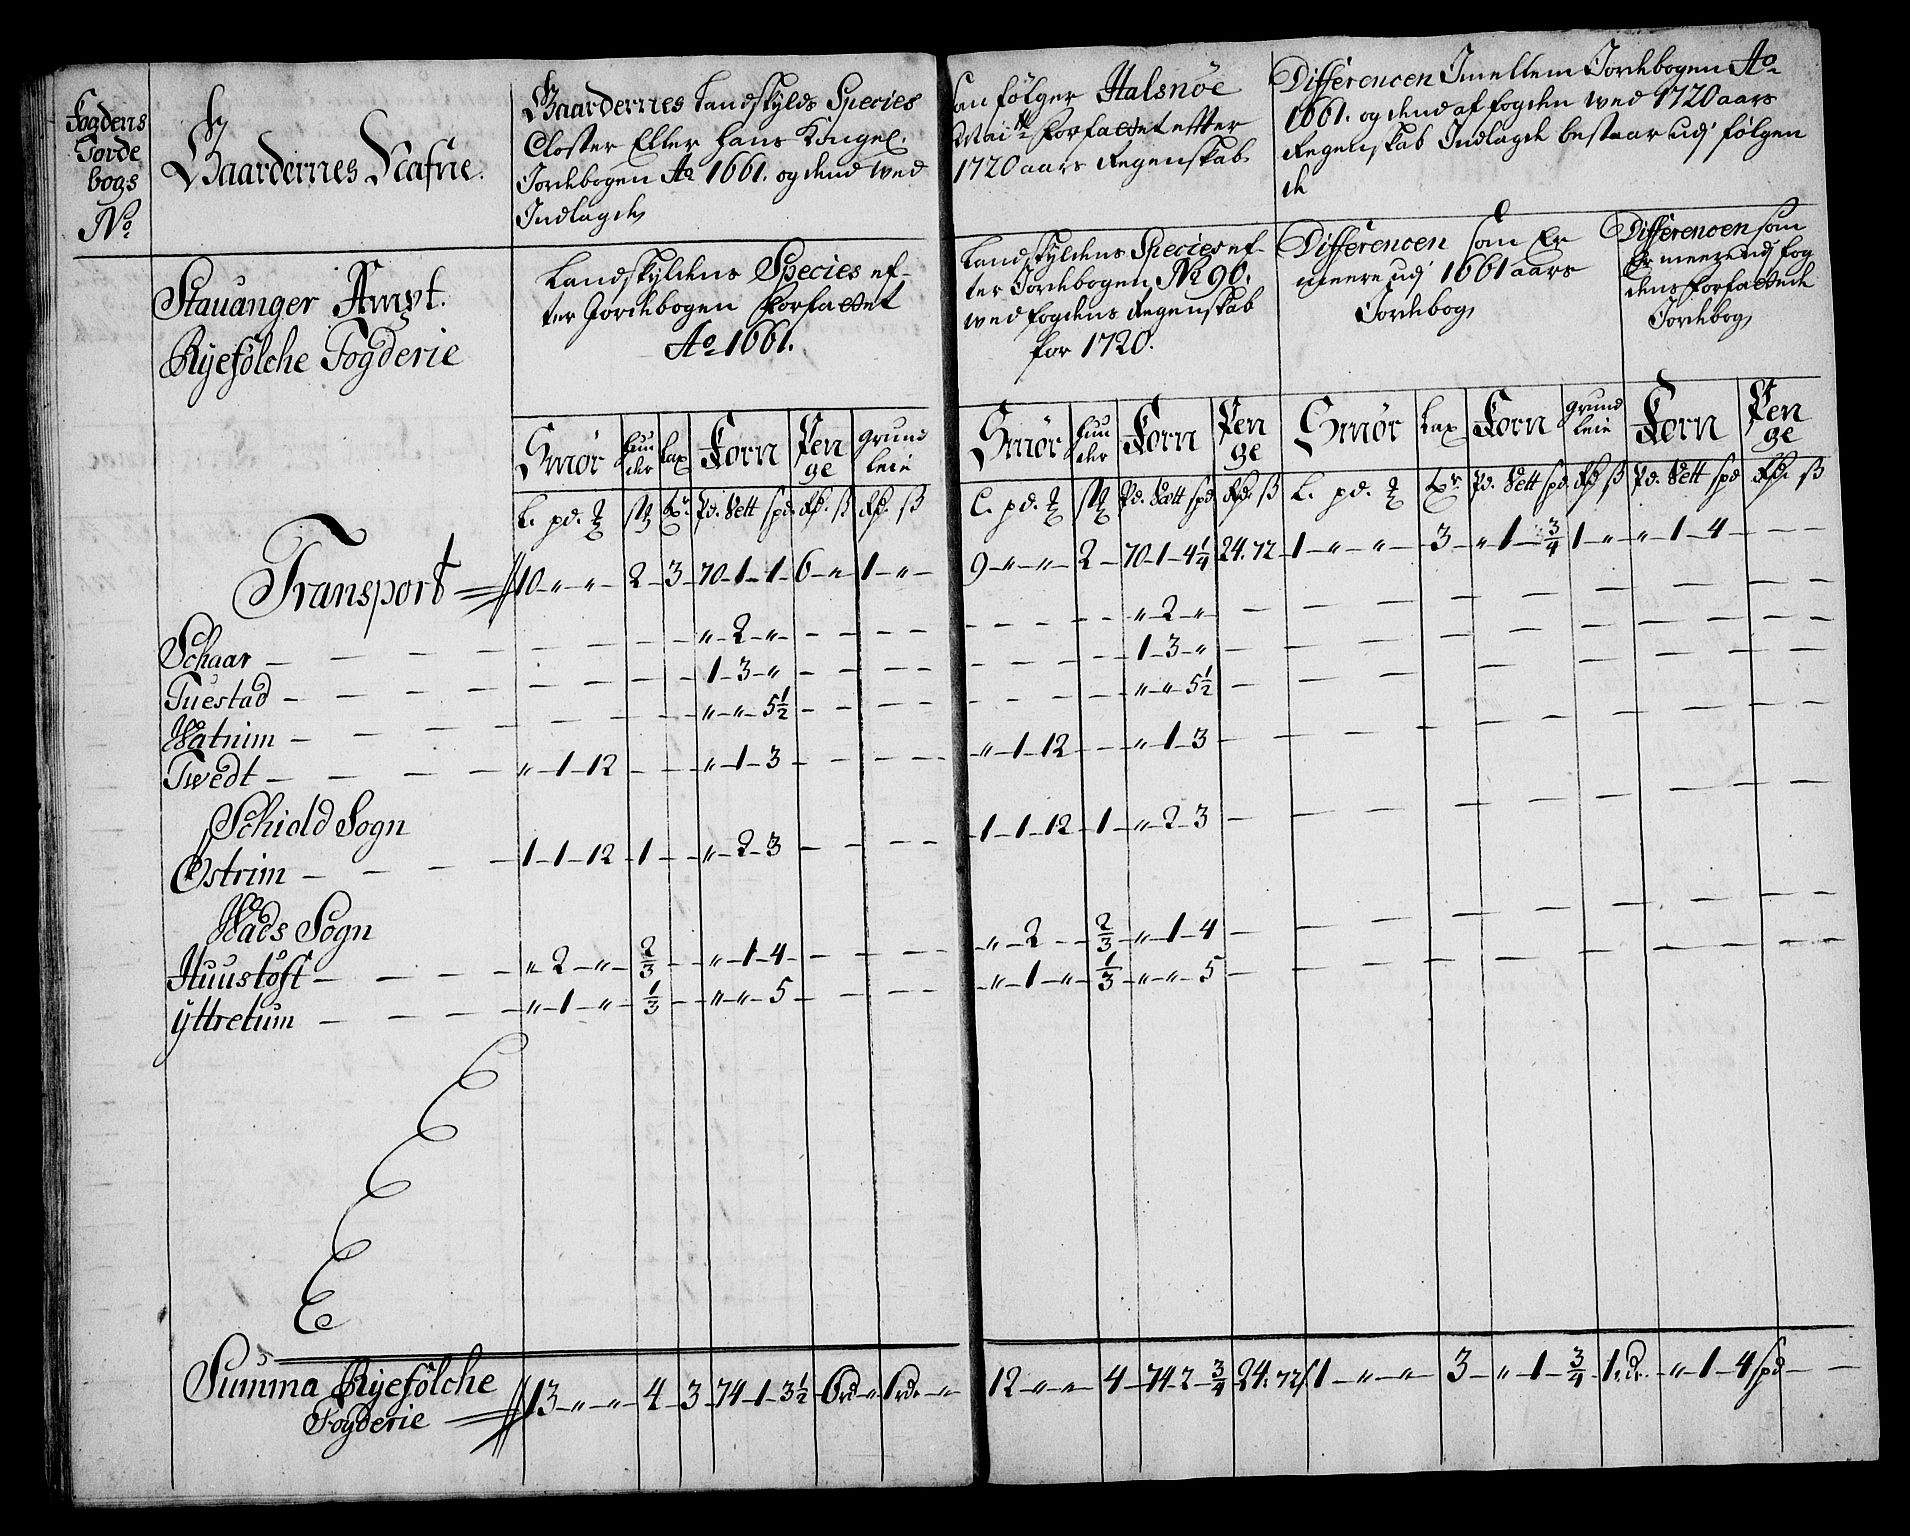 Fogdens
Jorde
bogs
No.
Gaardernes Nafne.
Gaardernes Landskylds Species
Closter Eller Hans Kongel.
Jordebogen Ao 1661. og dend wed
Indlagde
Som følger Halsnøe
Mai:tz forfattet efter
1720 aars Regenskab
Differencen Imellem Jordebogen Ao
1661. og dend af fogden wed 1720 aars
Regenskab Indlagde bestaar udj følgen
de
Stavanger Ampt.
Ryefølche Fogderie
Landskyldens Species ef-
ter Jordebogen forfattet
Ao 1661.
Landskyldens Species ef-
ter Jordebogen No 90.
wed fogdens Regenskab
for 1720.
Differencen som Er
meere udj 1661 aars
Jordebog
Differencen som
Er meere udj fog
dens forfattede
Jordebog
Smør Huu der Lax Korn Pen ge Grund leie Smør Huu der Korn Pen ge Smør Lax Korn Grund leie Korn Pen ge
L. pd. Pd. Vett spd. Rd. ß Rd. ß L. pd. Pd. Vett spd. Rd. ß L. pd. Pd. Vett spd. Rd. ß Pd. Vett spd Rd. ß
Transport 10 – „ – „ – 2 – 3 – 70 – 1 – 1 – 6 – „ – 1 – „ – 9 – „ – „ – 2 – 70 – 1 – 4 1/4 24. 72 – 1 – „ – „ – 3 – „ – 1 – 3/4 1 – „ – „ – 1 – 4 – – –
Schaar – – – „ – 2 – „ – – – – „ – 2 – „ – – –
Tuestad – – – 1 – 3 – „ – – – – 1 – 3 – „ – – –
Watnim – – – „ – „ – 5 1/2 – – – – „ – „ – 5 1/2 – – –
Twedt – – – „ – 1 – 12 – – „ – 1 – 3 – – – „ – 1 – 12 – – „ – 1 – 3 – – –
Schiold Sogn
Østrim – – – 1 – 1 – 12 – 1 – – „ – 2 – 3 – – – 1 – 1 – 12 – 1 – „ – 2 – 3 – – –
Wads Sogn
Huustøft – – – „ – 2 – „ – 2/3 – „ – 1 – 4 – – – „ – 2 – – 2/3 – „ – 1 – 4 – – –
Yttretum – – – „ – 1 – „ – 1/3 – „ – „ – 5 – – – „ – 1 – „ – 1/3 – „ – „ – 5 – – –
Summa Ryefølche
Fogderie 13 – „ – „ – 4 – 3 – 74 – 1 – 3 1/2 – 6 rd „ – 1 rdr „ – 12 – „ – „ – 4 – 74 – 2 – 3/4 – 24. 72 ß 1 – „ – „ – 3 – „ – 1 – 3/4 – 1 rdr. – „ – 1 – 4 spd – –